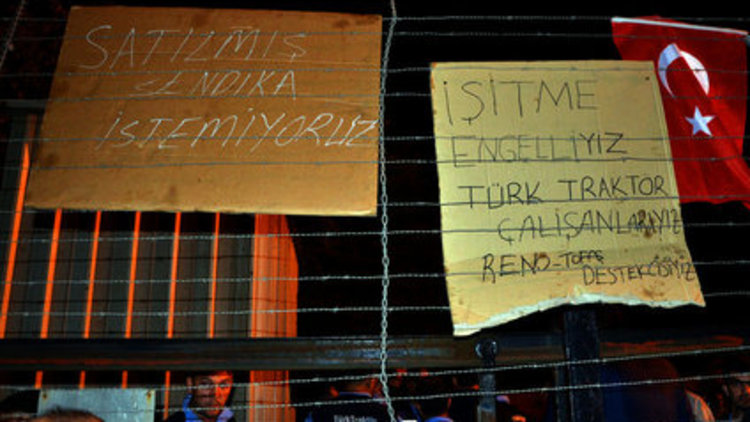 SATILMIŞ
SENDİKA
İSTEMİYORUZ
İŞİTME
ENGELLİYİZ
TÜRK TRAKTÖR
ÇALIŞANLARIYIZ
RENO-TOFAŞ
DESTEKÇİSİYİZ
TürkTraktör